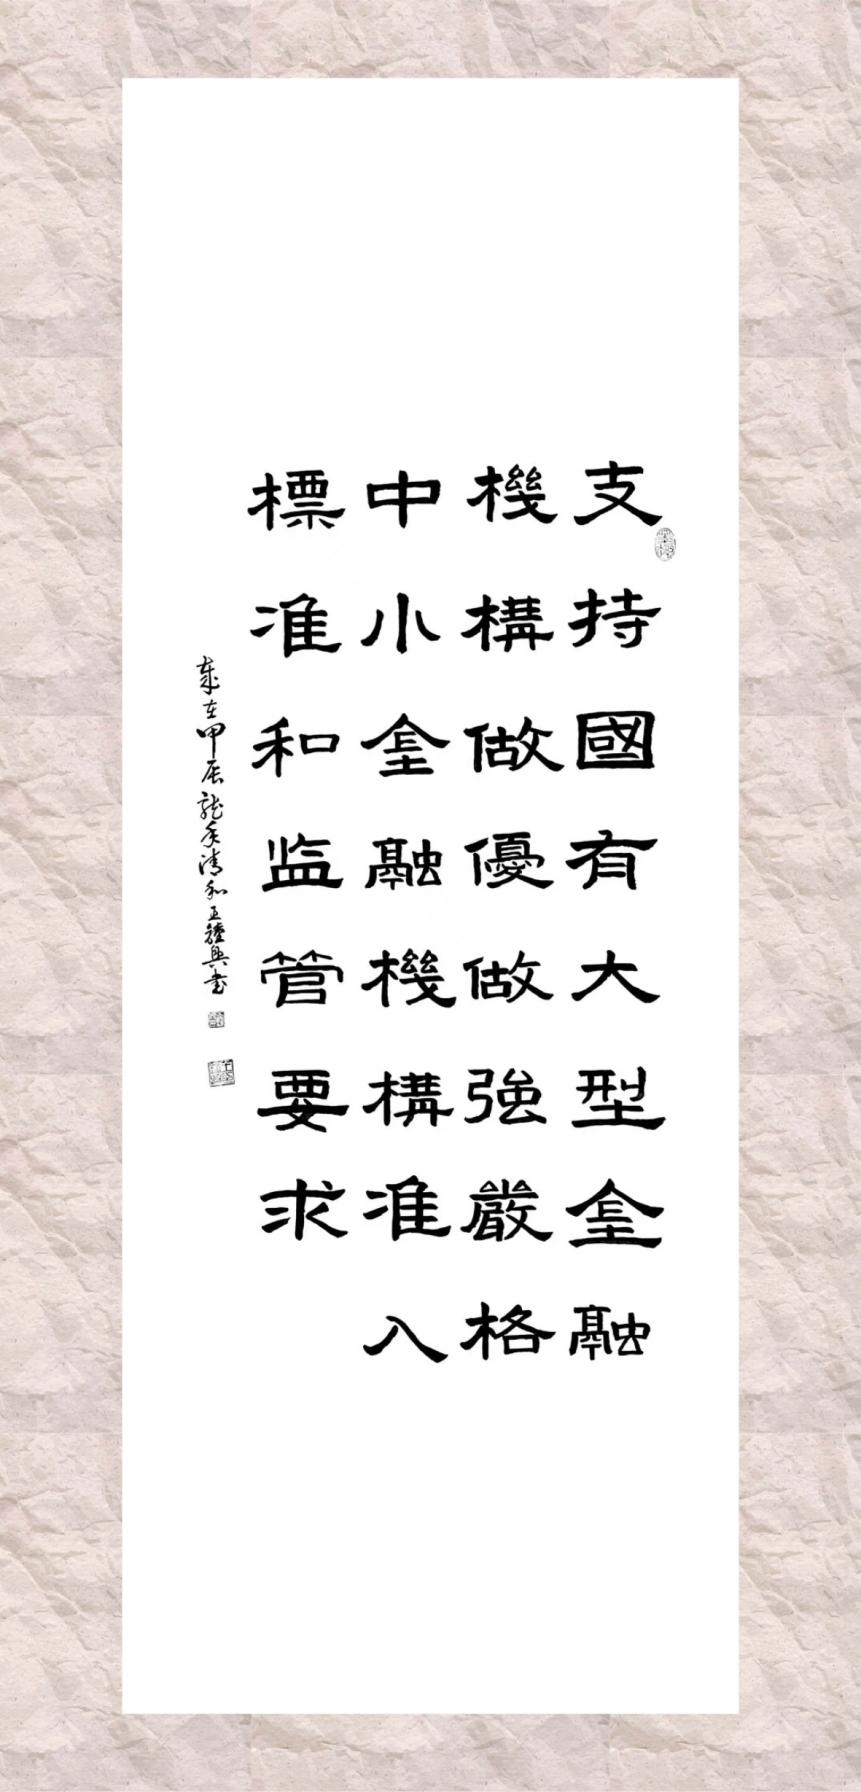 支持國有大型金融
機構做優做強嚴格
中小金融機構准入
標准和监管要求
歲在甲辰龍年清和王隆興书